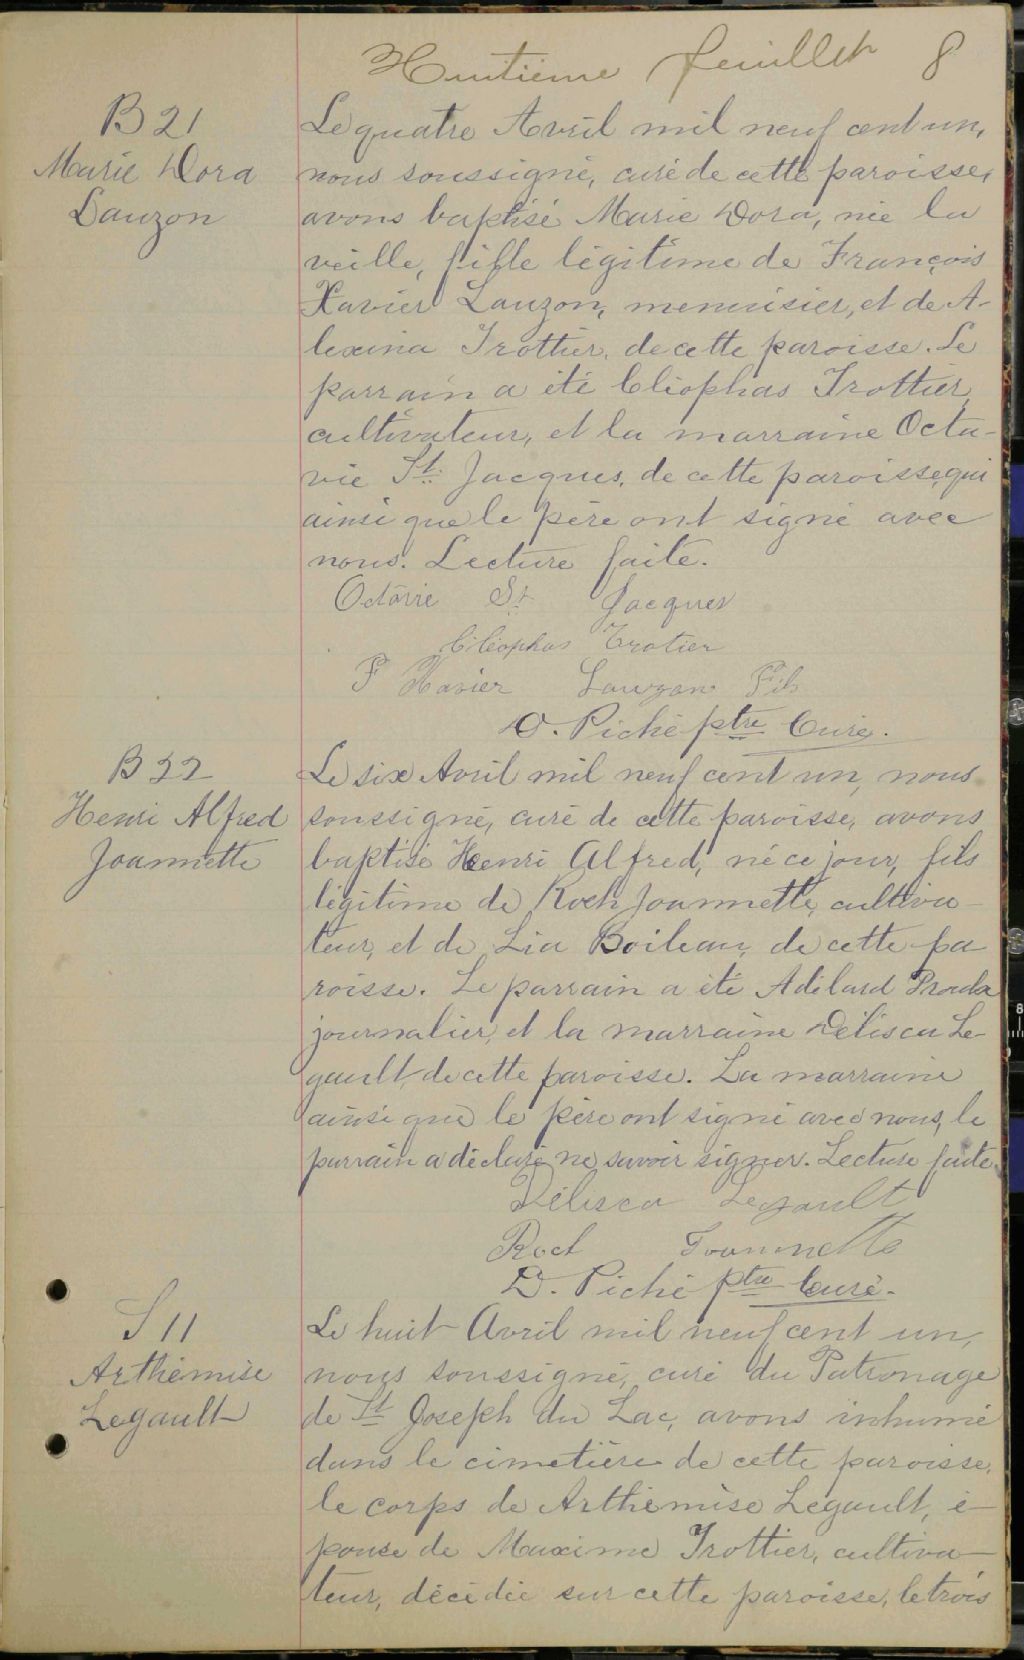 Huitième feuillet 8
B 21
Marie Dora
Lauzon
Le quatre Avril mil neuf cent un,
nous soussigné, curé de cette paroisse,
avons baptisé Marie Dora, née la
veille, fille légitime de François
Xavier Lauzon, menuisier, et de A-
lexina Trottier, de cette paroisse. Le
parrain a été Cléophas Trottier,
cultivateur, et la marraine Octa-
vie St. Jacques, de cette paroisse, qui
ainsi que le père ont signé avec
nous. Lecture faite.
Octavie St Jacques
Cléophas Trotier
F Xavier Lauzon Fils
D. Piché ptre Curé.
B 22
Henri Alfred
Joannette
Le six Avril mil neuf cent un, nous
soussigné, curé de cette paroisse, avons
baptisé Henri Alfred, né ce jour, fils
légitime de Roch Joannette, cultiva-
teur, et de Lia Boileau, de cette pa
roisse. Le parrain a été Adélard Proulx
journalier, et la marraine Délisca Le-
gault, de cette paroisse. La marraine
ainsi que le père ont signé avec nous, le
parrain a déclaré ne savoir signer. Lecture faite
Délisca Legault
Roch Joannette
D. Piché ptre Curé.
S 11
Arthémise
Legault
Le huit Avril mil neuf cent un,
nous soussigné, curé du Patronage
de St Joseph du Lac, avons inhumé
dans le cimetière de cette paroisse,
le corps de Arthémise Legault, é-
pouse de Maxime Trottier, cultiva-
teur, décédée sur cette paroisse, le trois